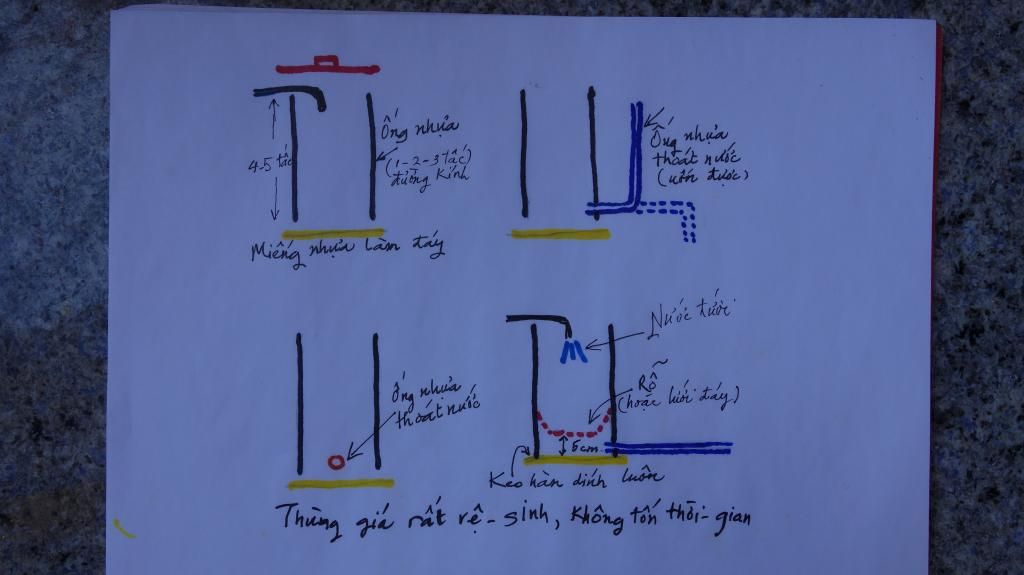 4-5 tấc
Ống nhựa
(1-2-3 tấc)
đường kính
Miếng nhựa làm đáy
Ống nhựa
thoát nước
(uốn được)
ống nhựa
thoát nước
Nước tưới
Rổ
(hoặc lưới đáy)
5cm
Keo hàn dính luôn
Thùng giá rất vệ-sinh, không tốn thời-gian